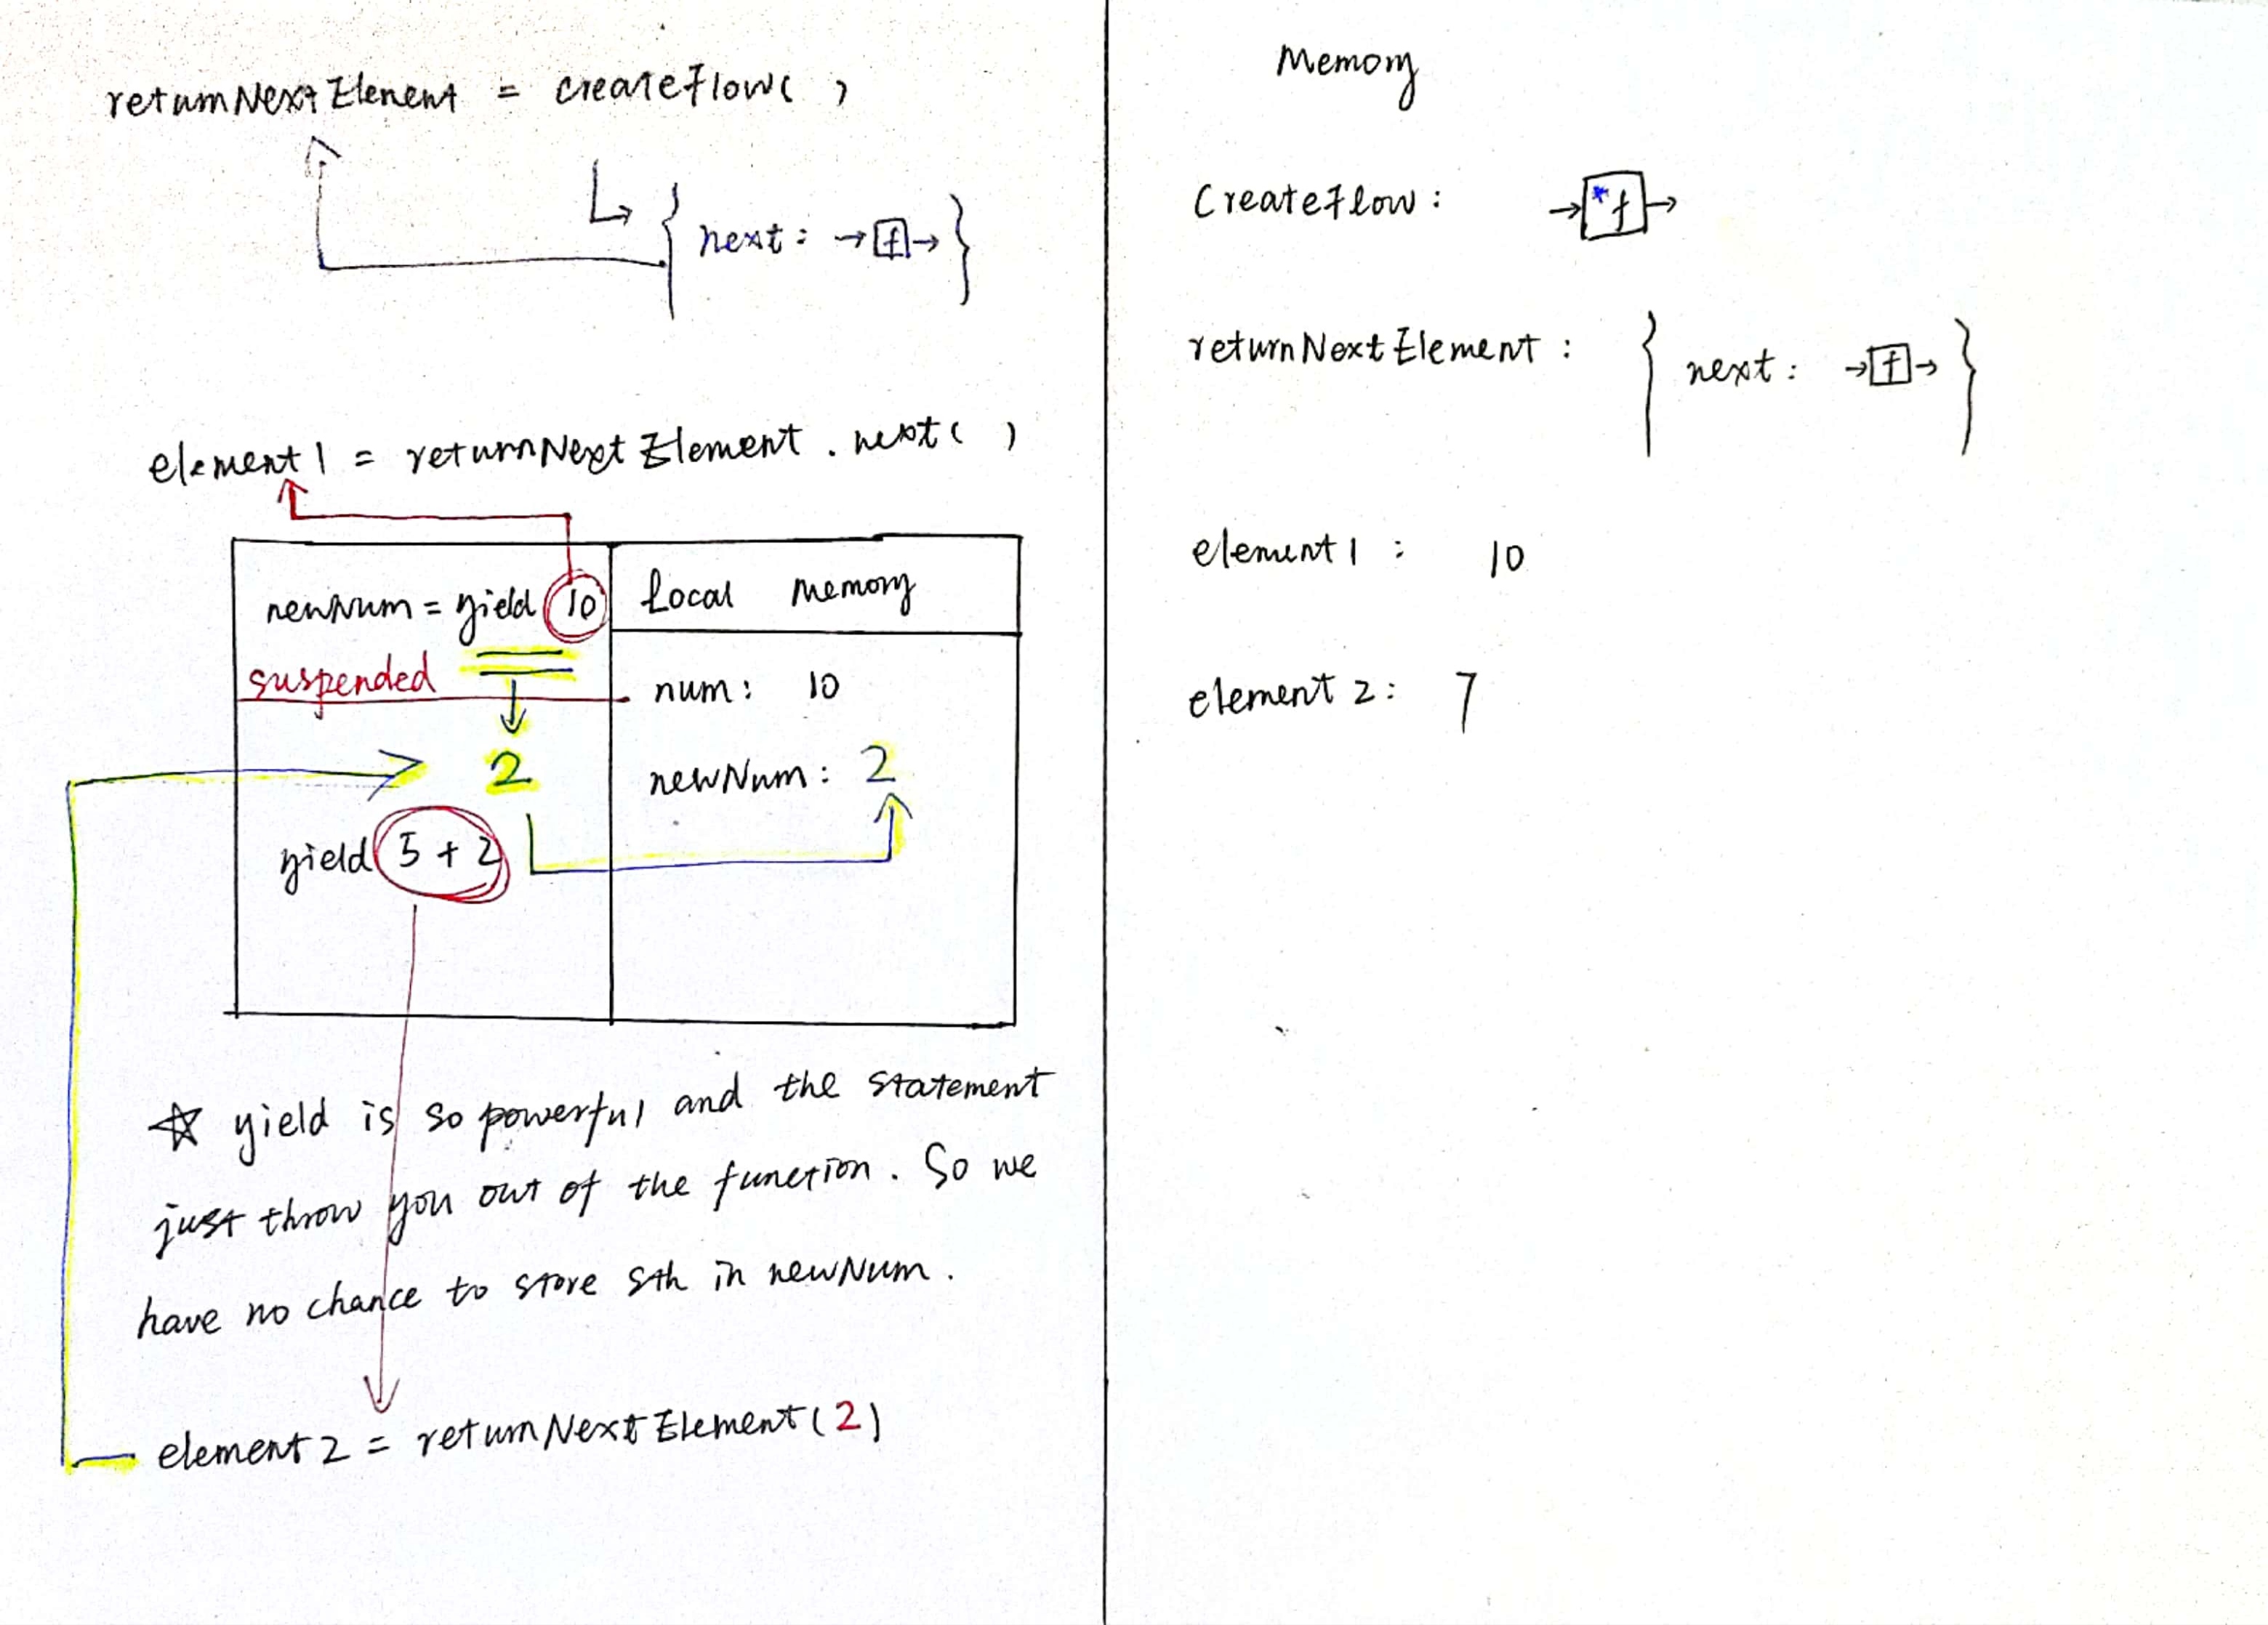 returnNextElement = createFlow( )
{ next: →[f]→ }
element1 = returnNextElement . next( )
newNum = yield 10
suspended
2
yield 5 + 2
Local Memory
num: 10
newNum: 2
☆ yield is so powerful and the statement
just throw you out of the function. So we
have no chance to store sth in newNum.
element2 = returnNextElement(2)
Memory
CreateFlow: →[*f]→
returnNextElement: { next: →[f]→ }
element1 : 10
element2: 7